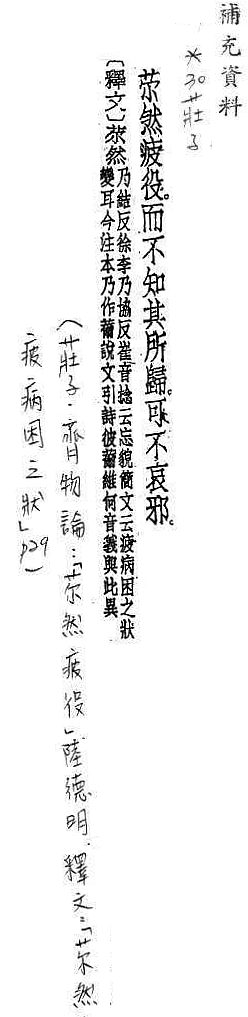 補充資料
*30莊子
苶然疲役。而不知其所歸。可不哀邪。
〔釋文〕苶然乃結反徐李乃協反崔音捻云忘貌簡文云疲病困之狀
變耳今注本乃作薾說文引詩彼薾維何音義與此異
(莊子·齊物論:「苶然疲役」陸德明·釋文:「苶然
疲病困之狀」p29)